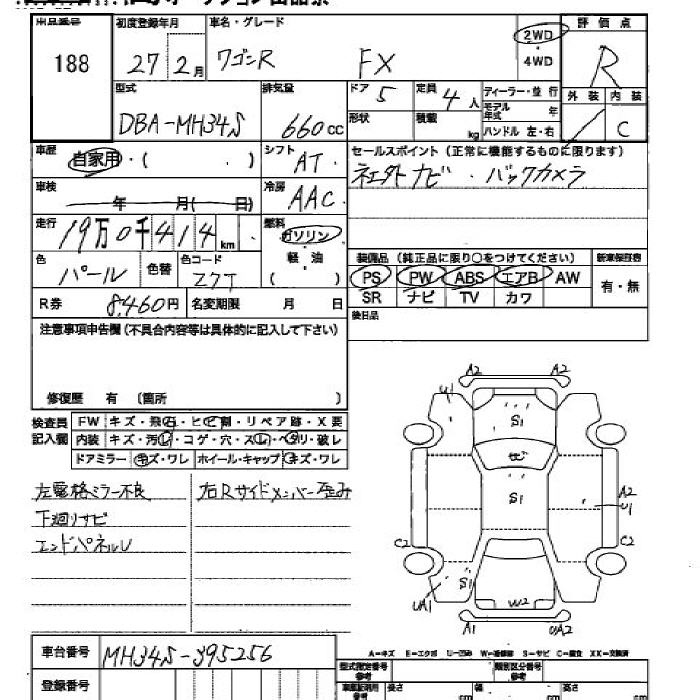 出品番号 188
初度登録年月 27年2月
車名・グレード ワゴンR FX
2WD
4WD
評価点 R
外装
内装 C
型式 DBA-MH34S
排気量 660cc
ドア 5
形状
定員 4人
積載 kg
ディーラー・並行
モデル年式 年
ハンドル 左・右
車歴 自家用・( . )
シフト AT
セールスポイント(正常に機能するものに限ります)
社外ナビ・バックカメラ
車検 年 月( 日)
冷房 AAC
走行 19万0千414km
燃料 ガソリン
軽・油
( )
色 パール
色替
色コード Z7T
装備品(純正品に限り○をつけてください)
新車保証書
PS PW ABS エアB AW
有・無
SR ナビ TV カワ
R券 8,460円
名変期限 月 日
後日品
注意事項申告欄(不具合内容等は具体的に記入して下さい)
修復歴 有 (箇所 )
検査員記入欄
FW キズ・飛石・ヒビ割・リペア跡・X要
内装 キズ・汚レ・コゲ・穴・スレ・ヘタリ・破レ
ドアミラー キズ・ワレ ホイール・キャップ キズ・ワレ
左電格ミラー不良
右Rサイドメンバー歪み
下廻りサビ
エンドパネルU
A2 A2
U1
S1
S1
A2
U1
C2 C2
S1
UA1
W2
A1 UA2
A-キズ E-エクボ U-凹み W-補修跡 S-サビ C-腐食 XX-交換済
車台番号 MH34S-395256
登録番号
型式指定番号 参考
類別区分番号 参考
長さ cm
幅 cm
高さ cm